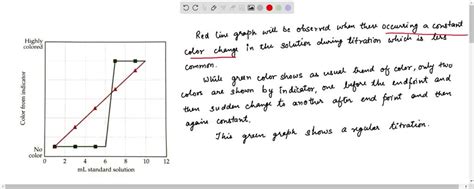 Highly
colored
Color from indicator
No
color
0 2 4 6 8 10 12
mL standard solution
Red line graph will be observed when there occurring a constant
color change in the solution during titration which is less
common.
While green color shows as usual trend of color, only two
colors are shown by indicator, one before the endpoint and
then sudden change to another after end point and then
again constant.
This green graph shows a regular titration.